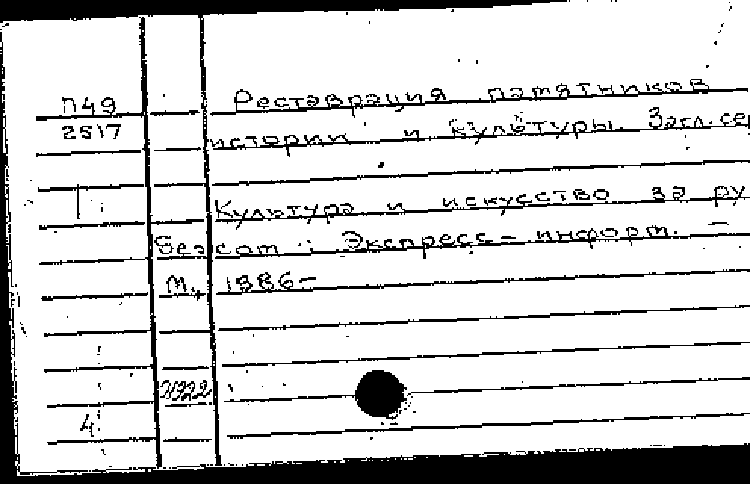 П49
2517
Реставрация памятников
истории и культуры. Загл. се
Культура и искусство за ру
бежом : Экспресс-информ. –
М., 1986–
4